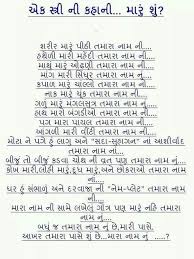 એક સ્ત્રી ની કહાની... મારું શું?
શરીર મારું પીઠી તમારા નામ ની....
હથેળી મારી મહેંદી તમારા નામ ની....
માથું મારું ઓઢણી તમારા નામ ની....
માંગ મારી સિંદુર તમારા નામ નું....
કપાળ મારું ચાંલ્લો તમારા નામ નો....
નાક મારું ચૂંક તમારા નામ ની....
ગળું મારું મંગલસૂત્ર તમારા નામ નું....
હાથ મારા ચૂડીઓ તમારા નામ ની....
પગ મારા પાયલ તમારા નામ ની....
આંગળી મારી વીંટી તમારા નામ ની....
મોટા ને પગે હું લાગુ અને "સદા-સુહાગન" નાં આશીર્વાદ
તમારા નામ ના....
બીજું તો બીજું કરવા ચોથ ની વ્રત પણ તમારા નામ નું....
કોખ મારી,લોહી મારું,દૂધ મારું,અને છોકરાઓ તમારા નામ
ના....
ઘર હું સંભાળું અને દરવાજા ની "નેમ-પ્લેટ" તમારા નામ
ની....
મારા નામ ની સામે લખેલું ગોત્ર પણ મારું નહિ તમારા
નામ નું....
બધું જ તમારા નામ નું છે,મારી પાસે.
આખર તમારા પાસે શું છે...મારા નામ નું .....?